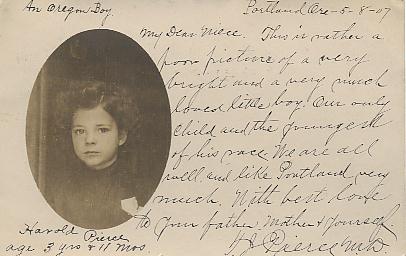 An Oregon Boy.
Portland Ore - 5-8-07
My Dear Niece. This is rather a
poor picture of a very
bright and a very much
loved little boy. Our only
child and the youngest
of his race. We are all
well and like Portland very
much. With best love
to your father Mother & yourself.
Pierce M.D.
Harold Pierce
age 3 yrs & 11 mos.